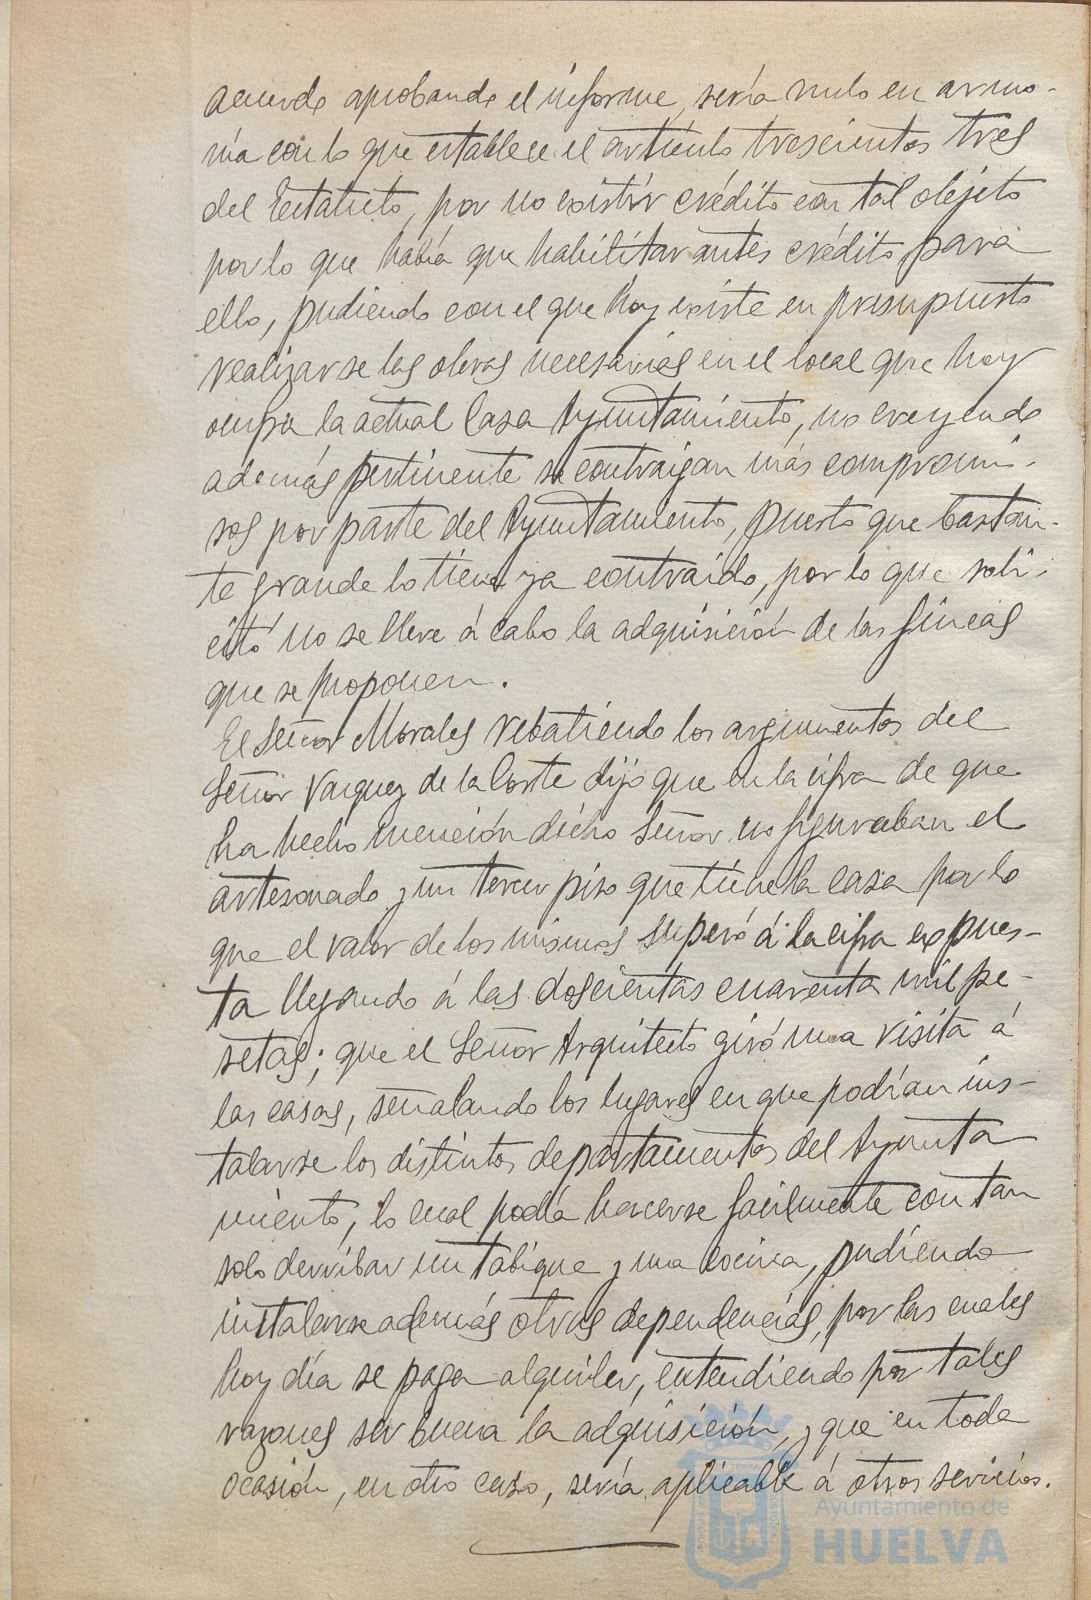 acuerdo aprobando el informe, sería nulo en armo-
nía con lo que establece el artículo trescientos tres
del Estatuto, por no existir crédito con tal objeto
por lo que había que habilitar antes crédito para
ello, pudiendo con el que hoy existe en presupuesto
realizarse las obras necesarias en el local que hoy
ocupa la actual Casa Ayuntamiento, no creyendo
además pertinente se contraigan más compromi-
sos por parte del Ayuntamiento, puesto que bastan-
te grande lo tiene ya contraido, por lo que soli-
citó no se lleve á cabo la adquisición de las fincas
que se proponen.
El Señor Morales rebatiendo los argumentos del
Señor Vazquez de la Corte dijo que en la cifra de que
ha hecho mención dicho Señor no figuraban el
artesonado y un tercer piso que tiene la casa por lo
que el valor de los mismos superó á la cifra expues-
ta llegando á las doscientas cuarenta mil pe-
setas; que el Señor Arquitecto giró una visita á
las casas, señalando los lugares en que podrían ins-
talarse los distintos departamentos del Ayunta
miento, lo cual podía hacerse facilmente con tan
solo derribar un tabique y una cocina, pudiendo
instalarse además otras dependencias, por las cuales
hoy día se paga alquiler, entendiendo por tales
razones ser buena la adquisición, y que en toda
ocasión, en otro caso, sería aplicable á otros servicios.
Ayuntamiento de
HUELVA